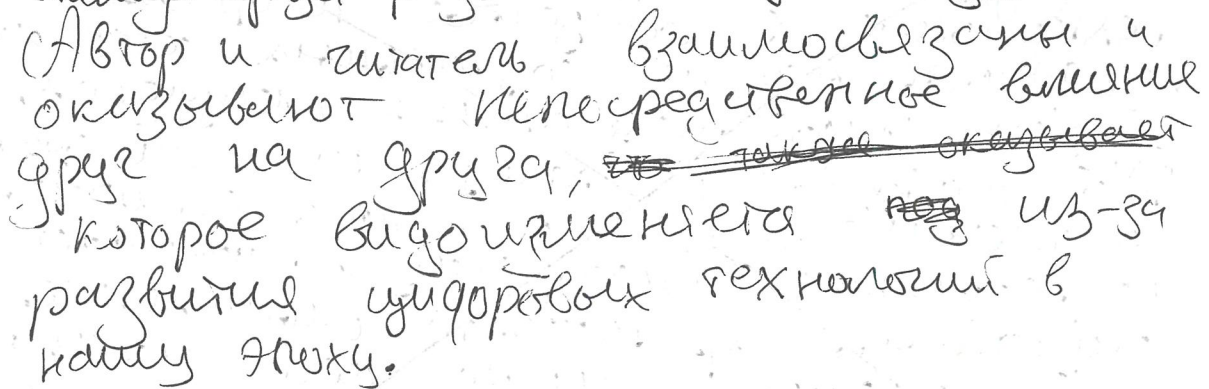 (Автор и читатель взаимосвязаны и
оказывают непосредственное влияние
друг на друга, что также оказывает
которое видоизменяется под из-за
развития цифровых технологий в
нашу эпоху.